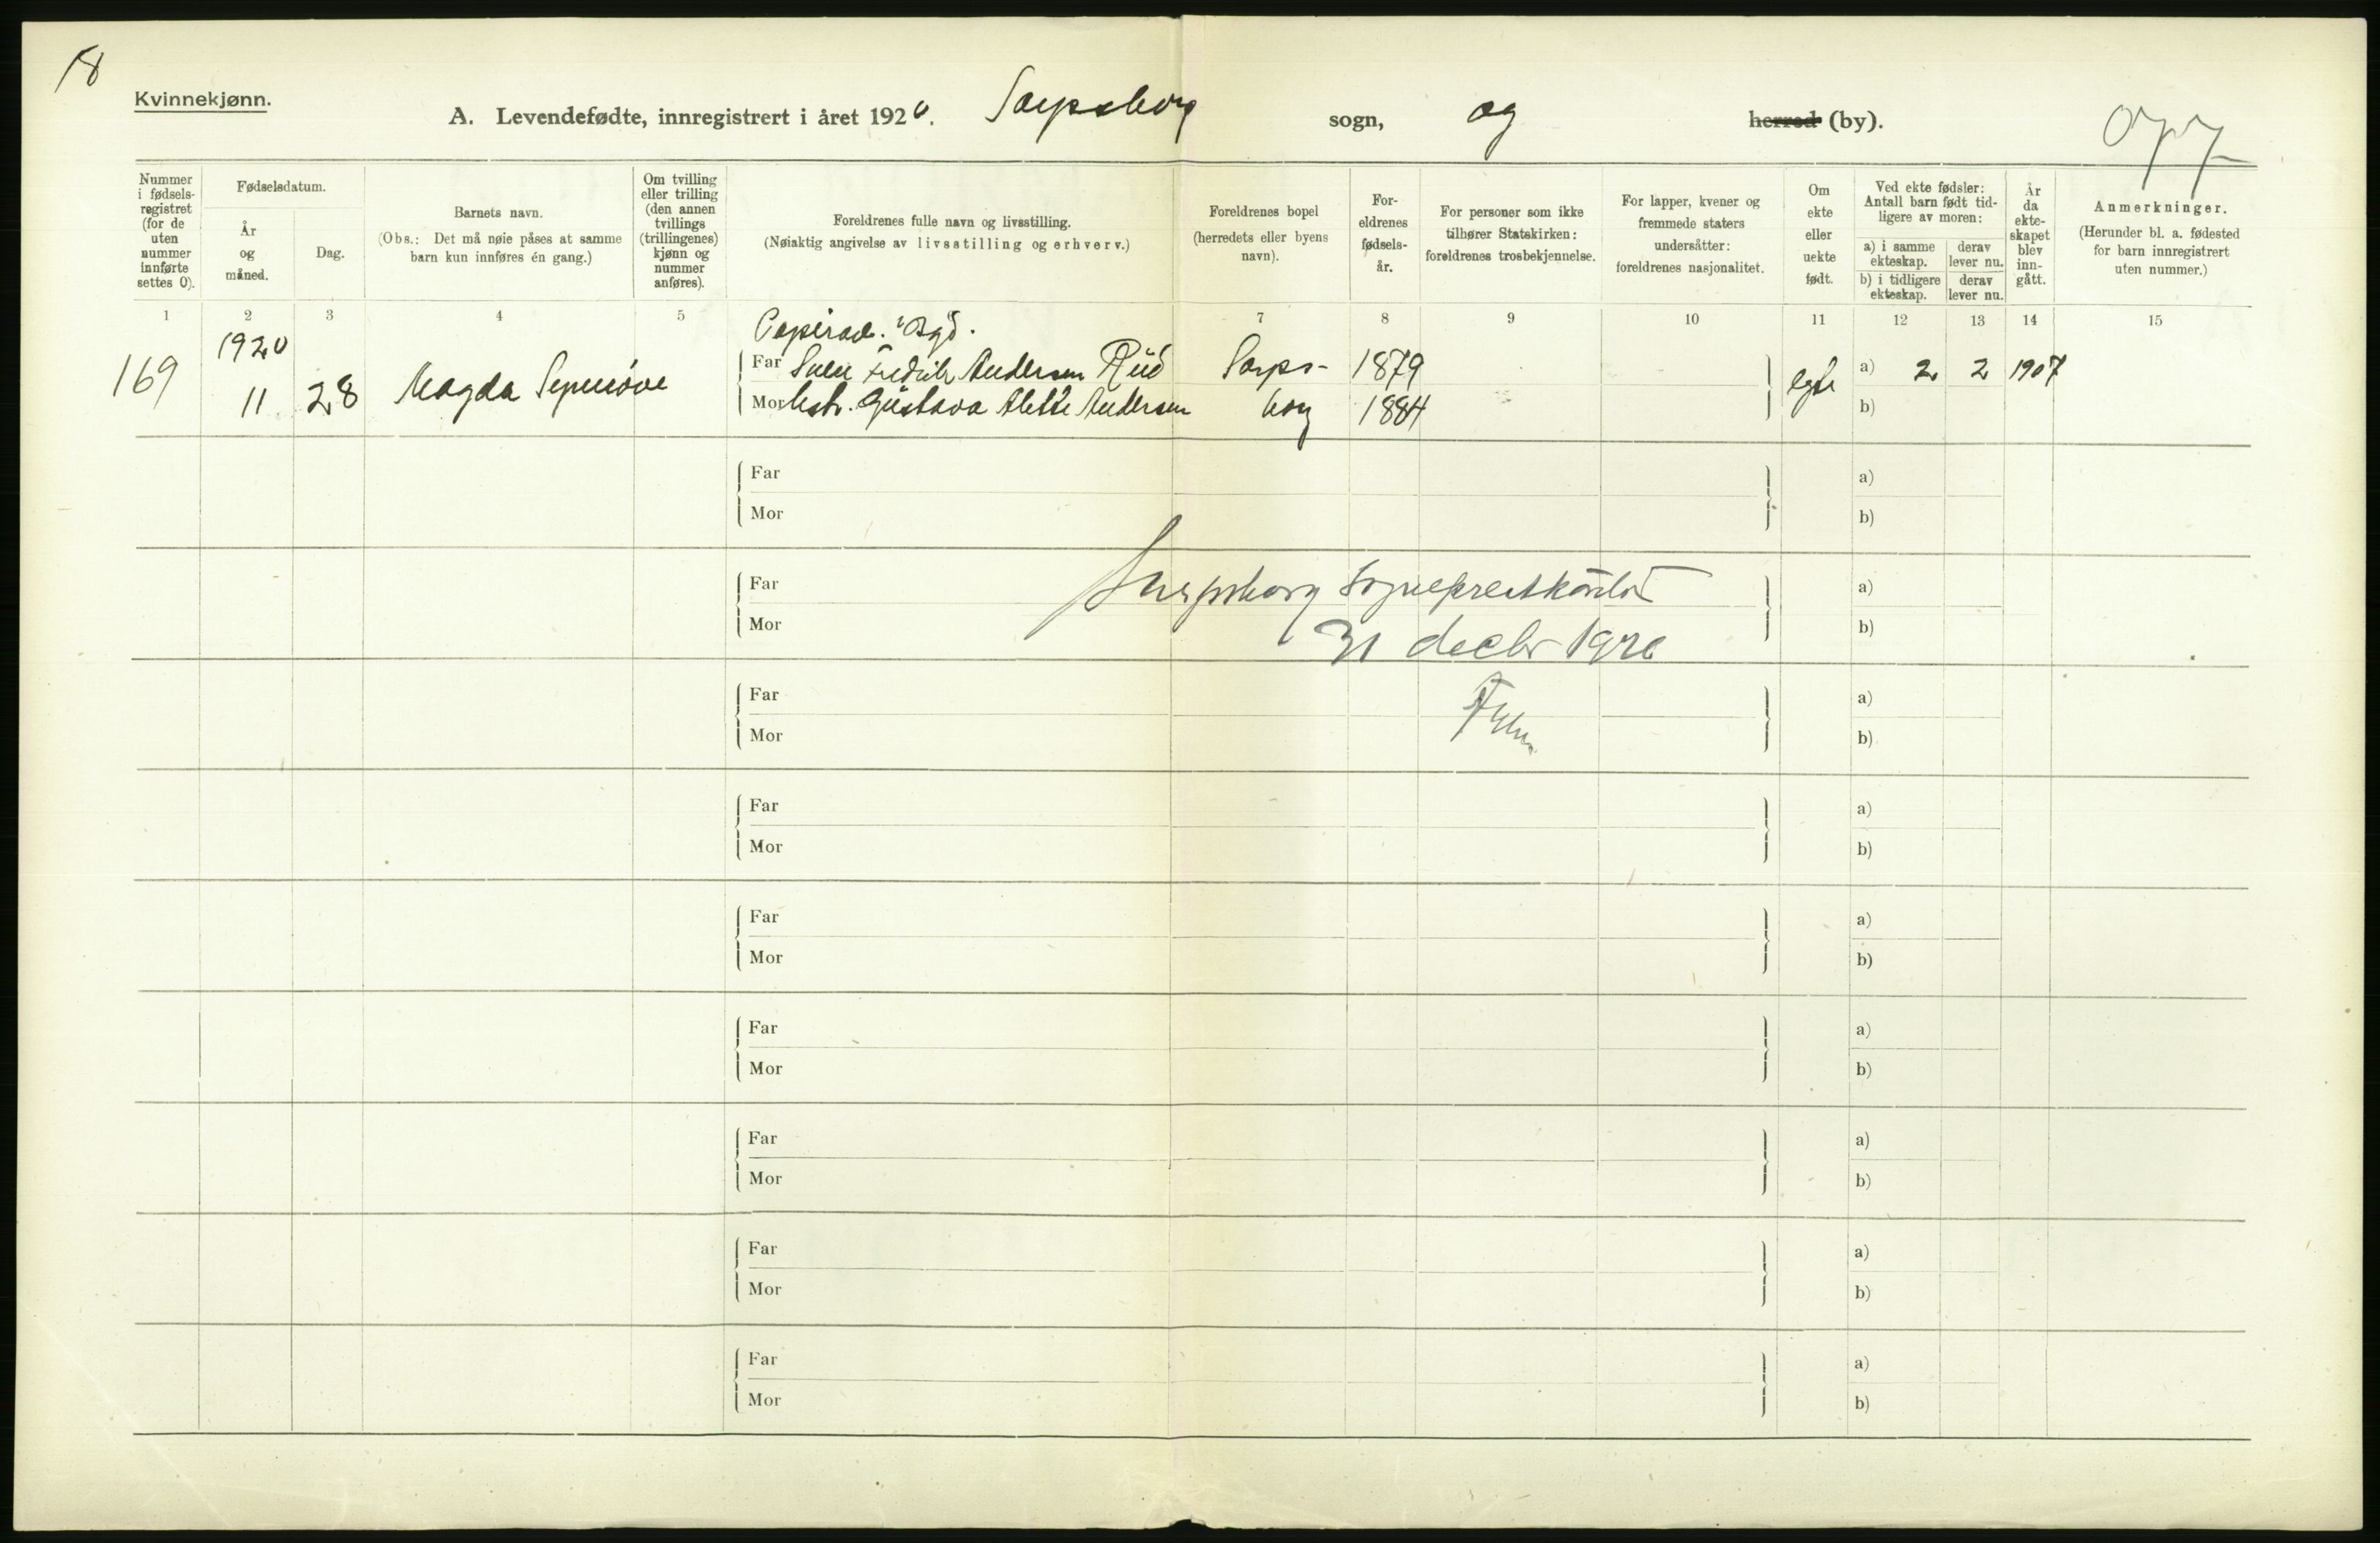 18
Kvinnekjønn.
A. Levendefødte, innregistrert i året 1920. Sarpsborg sogn, og herred (by).
Nummer i fødsels-registret (for de uten nummer innførte settes 0).
Fødselsdatum.
År og måned.
Dag.
Barnets navn.
(Obs.: Det må nøie påses at samme barn kun innføres én gang.)
Om tvilling eller trilling (den annen tvillings (trillingenes) kjønn og nummer anføres).
Foreldrenes fulle navn og livsstilling.
(Nøiaktig angivelse av livsstilling og erhverv.)
Foreldrenes bopel (herredets eller byens navn).
For-eldrenes fødsels-år.
For personer som ikke tilhører Statskirken: foreldrenes trosbekjennelse.
For lapper, kvener og fremmede staters undersåtter: foreldrenes nasjonalitet.
Om ekte eller uekte født.
Ved ekte fødsler: Antall barn født tid-ligere av moren:
a) i samme ekteskap.
derav lever nu.
b) i tidligere ekteskap.
derav lever nu.
År da ekte-skapet blev inn-gått.
Anmerkninger.
(Herunder bl. a. fødested for barn innregistrert uten nummer.)
1 2 3 4 5 7 8 9 10 11 12 13 14 15
169 1920 11 28 Magda
Far Fredrik Andersen Rud Sarps- 1879 a) 2 2 1907
Mor Gustava Andersen borg 1884 b)
Far a)
Mor b)
Far Sarpsborg Sogneprestkontor a)
Mor 31 decbr 1920 b)
Far a)
Mor b)
Far a)
Mor b)
Far a)
Mor b)
Far a)
Mor b)
Far a)
Mor b)
Far a)
Mor b)
Far a)
Mor b)